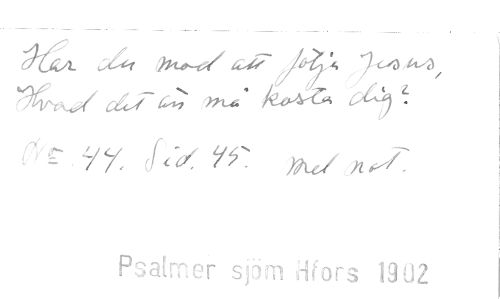 Har du mod att följa Jesus,
Hvad det än må kosta dig?
No 44. Sid. 45. med not.
Psalmer sjöm Hfors 1902